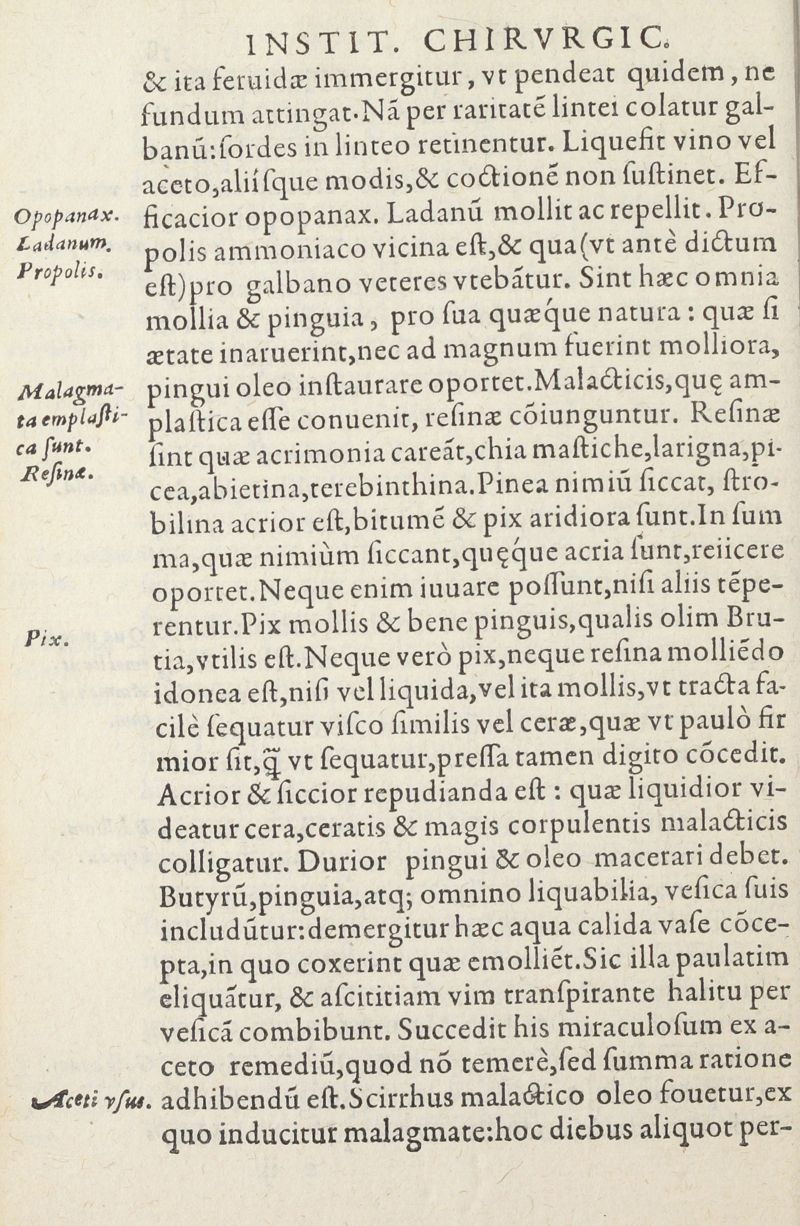 INSTIT. CHIRVRGIC.
& ita feruidæ immergitur, vt pendeat quidem, ne
fundum attingat. Nã per raritatẽ lintei colatur gal-
banũ: ſordes in linteo retinentur. Liquefit vino vel
aceto, aliíſque modis, & coctionẽ non ſuſtinet. Ef-
Opopanax. ficacior opopanax. Ladanũ mollit ac repellit. Pro-
Ladanum. polis ammoniaco vicina eſt, & qua (vt antè dictum
Propolis. eſt) pro galbano veteres vtebãtur. Sint hæc omnia
mollia & pinguia, pro ſua quæque natura: quæ ſi
ætate inaruerint, nec ad magnum fuerint molliora,
Malagma- pingui oleo inſtaurare oportet. Malacticis, quę am-
ta emplaſti- plaſtica eſſe conuenit, reſinæ cõiunguntur. Reſinæ
ca ſunt. ſint quæ acrimonia careãt, chia maſtiche, larigna, pi-
Reſinæ. cea, abietina, terebinthina. Pinea nimiũ ſiccat, ſtro-
bilina acrior eſt, bitumẽ & pix aridiora ſunt. In ſum
ma, quæ nimiùm ſiccant, quęque acria ſunt, reiicere
oportet. Neque enim iuuare poſſunt, niſi aliis tẽpe-
Pix. rentur. Pix mollis & bene pinguis, qualis olim Bru-
tia, vtilis eſt. Neque verò pix, neque reſina molliẽdo
idonea eſt, niſi vel liquida, vel ita mollis, vt tracta fa-
cilè ſequatur viſco ſimilis vel ceræ, quæ vt paulò fir
mior ſit, q̃ vt ſequatur, preſſa tamen digito cõcedit.
Acrior & ſiccior repudianda eſt: quæ liquidior vi-
deatur cera, ceratis & magis corpulentis malacticis
colligatur. Durior pingui & oleo macerari debet.
Butyrũ, pinguia, atq; omnino liquabilia, veſica ſuis
includũtur: demergitur hæc aqua calida vaſe cõce-
pta, in quo coxerint quæ emolliẽt. Sic illa paulatim
eliquãtur, & aſcititiam vim tranſpirante halitu per
veſicã combibunt. Succedit his miraculoſum ex a-
ceto remediũ, quod nõ temerè, ſed ſumma ratione
Aceti vſus. adhibendũ eſt. Scirrhus malactico oleo fouetur, ex
quo inducitur malagmate: hoc diebus aliquot per-